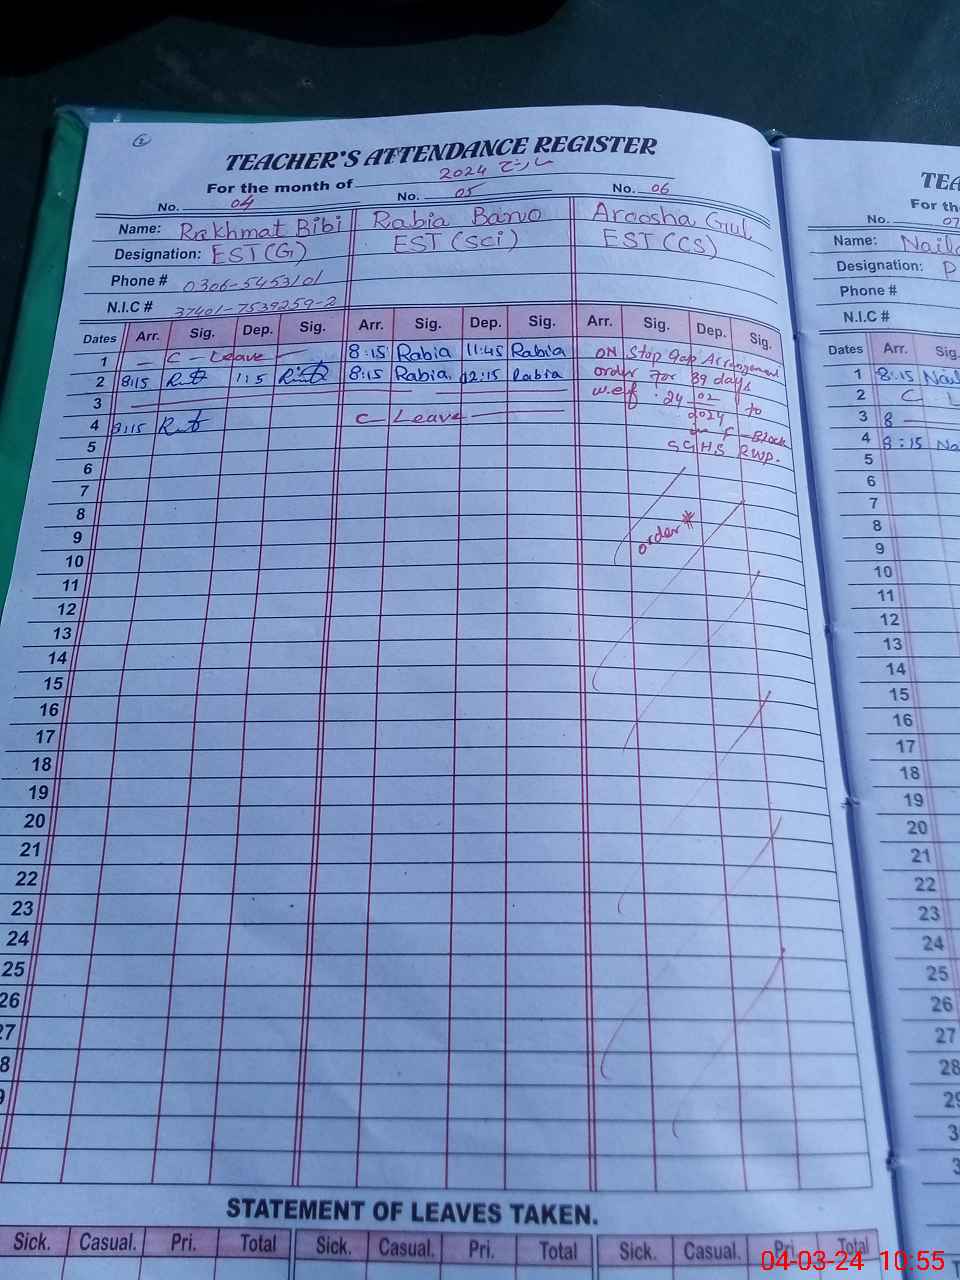 TEACHER'S ATTENDANCE REGISTER
For the month of مارچ 2024
No. 04 No. 05 No. 06
Name: Rakhmat Bibi Rabia Bano Aroosha Gul
Designation: EST(G) EST(Sci) EST(CS)
Phone # 0306-5453101
N.I.C # 37401-7539259-2
Dates Arr. Sig. Dep. Sig. Arr. Sig. Dep. Sig. Arr. Sig. Dep. Sig.
1 — C-Leave — 8:15 Rabia 11:45 Rabia ON Stop Gap Arrangement
2 8:15 1:5 8:15 Rabia 12:15 Rabia order for 89 days
3 w.e.f 24 02 2024 to
4 8:15 C-Leave Block
5 GGHS RWP.
6
7
8
9 order #
10
11
12
13
14
15
16
17
18
19
20
21
22
23
24
25
26
27
8
9
STATEMENT OF LEAVES TAKEN.
Sick. Casual. Pri. Total Sick. Casual. Pri. Total Sick. Casual. Pri. Total
TEA
For the
No. 07
Name: Naila
Designation: P
Phone #
N.I.C #
Dates Arr. Sig.
1 8:15 Nail
2 C L
3 8
4 8:15 Na
5
6
7
8
9
10
11
12
13
14
15
16
17
18
19
20
21
22
23
24
25
26
27
28
29
3
3
04-03-24 10:55